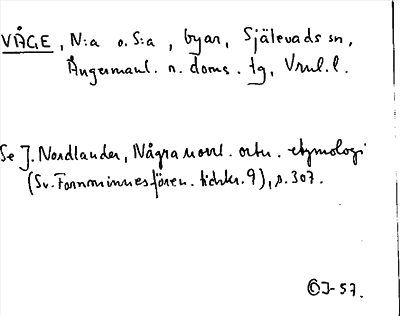 VÅGE, N:a o. S:a, byar, Själevads sn,
Ångermanl. n. doms. tg, Vnrl. l.
Se J. Nordlander, Några norrl. ortn. etymologi
(Sv. Fornminnesfören. tidskr. 9), s. 307.
©J-57.